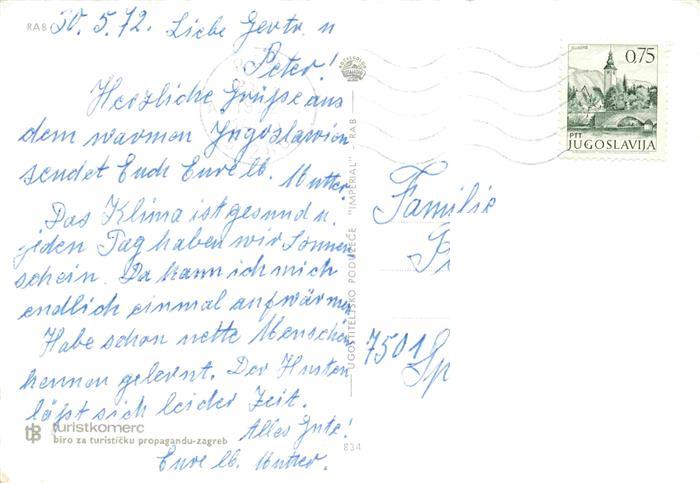 RAB
30.5.72. Liebe Gertr. u
Peter!
Herzliche Grüße aus
dem warmen Jugoslawien
sendet Euch Eure lb. Mutter.
Das Klima ist gesund u.
jeden Tag haben wir Sonnen
schein. Da kann ich mich
endlich einmal aufwärmen
Habe schon nette Menschen
kennen gelernt. Der Husten
läßt sich leider Zeit.
Alles Gute!
Eure lb. Mutter.
turistkomerc
biro za turističku propagandu-zagreb
UGOSTITELJSKO PODUZEĆE "IMPERIAL" - RAB
834
0,75
PTT
JUGOSLAVIJA
Familie
7501 Sp